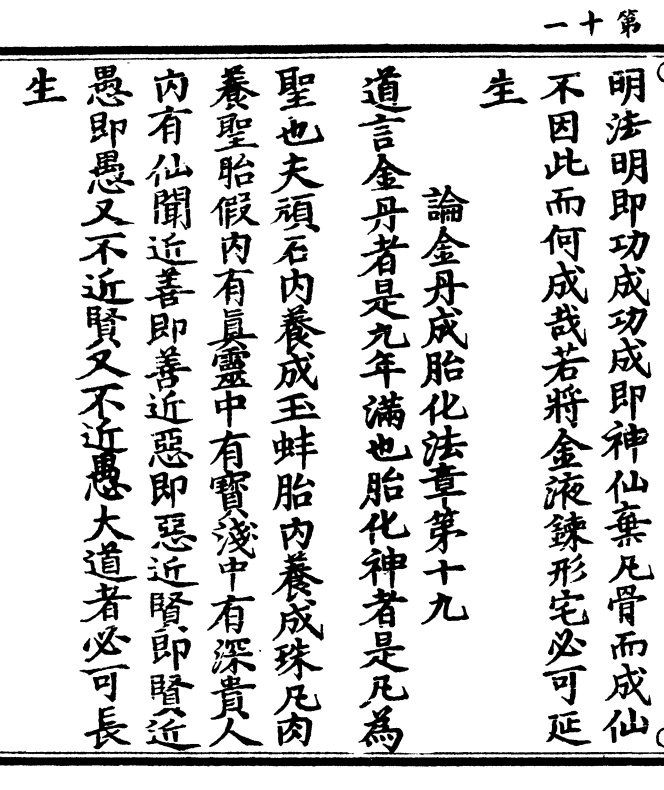 第十一
明法明即功成功成即神仙棄凡骨而成仙
不因此而何成哉若將金液鍊形宅必可延
生
論金丹成胎化法章第十九
道言金丹者是九年滿也胎化神者是凡為
聖也夫頑石内養成玉蚌胎内養成珠凡肉
養聖胎假内有眞靈中有寶淺中有深貴人
内有仙聞近善即善近惡即惡近賢即賢近
愚即愚又不近賢又不近愚大道者必可長
生